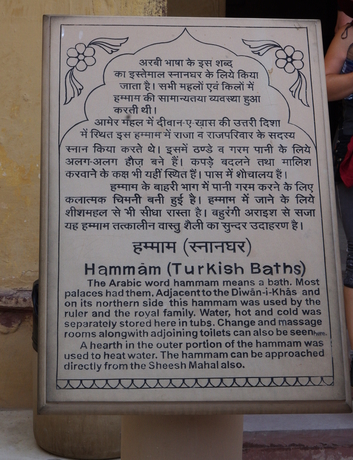 अरबी भाषा के इस शब्द
का इस्तेमाल स्नानघर के लिये किया
जाता है। सभी महलों एवं किलों में
हम्माम की सामान्यतया व्यवस्था हुआ
करती थी।
आमेर महल में दीवान-ए-खास की उत्तरी दिशा
में स्थित इस हम्माम में राजा व राजपरिवार के सदस्य
स्नान किया करते थे। इसमें ठण्डे व गरम पानी के लिये
अलग-अलग हौज़ बने हैं। कपड़े बदलने तथा मालिश
करवाने के कक्ष भी यहीं स्थित हैं। पास में शौचालय है।
हम्माम के बाहरी भाग में पानी गरम करने के लिए
कलात्मक चिमनी बनी हुई है। हम्माम में जाने के लिये
शीशमहल से भी सीधा रास्ता है। बहुरंगी अराइश से सजा
यह हम्माम तत्कालीन वास्तु शैली का सुन्दर उदाहरण है।
हम्माम (स्नानघर)
Hammām (Turkish Baths)
The Arabic word hammam means a bath. Most
palaces had them. Adjacent to the Dīwān-i-Khās and
on its northern side this hammam was used by the
ruler and the royal family. Water, hot and cold was
separately stored here in tubs. Change and massage
rooms alongwith adjoining toilets can also be seen here.
A hearth in the outer portion of the hammam was
used to heat water. The hammam can be approached
directly from the Sheesh Mahal also.